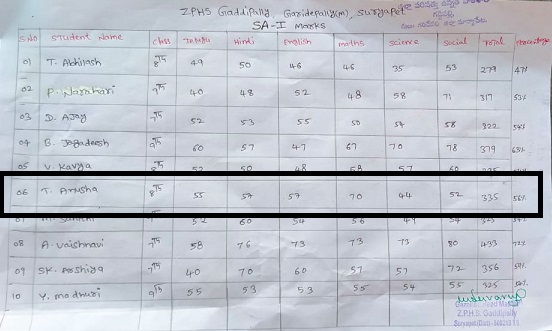 ZPHS Gaddipally, Garidepally(m), Suryapet
SA-I Marks
S.No Student Name Class Telugu Hindi English maths science Social Total Percentage
01 T. Abhilash 8th 49 50 46 46 35 53 279 47%
02 P. Narahari 9th 40 48 52 48 58 71 317 53%
03 D. Ajay 7th 52 53 55 50 54 58 322 54%
04 B. Jagadeesh 9th 60 57 47 67 70 78 379 63%
05 V. Kavya 50 48 58 57 60
06 T. Anusha 8th 55 57 57 70 44 52 335 56%
07 52 60 54 56 49 54 325
08 A. Vaishnavi 7th 58 76 73 73 73 80 433 72%
09 SK. Arshiya 7th 40 70 60 57 57 72 356 59%
10 Y. Madhuri 9th 55 53 53 55 54 55 325
Head Master
Z.P.H.S. Gaddipally